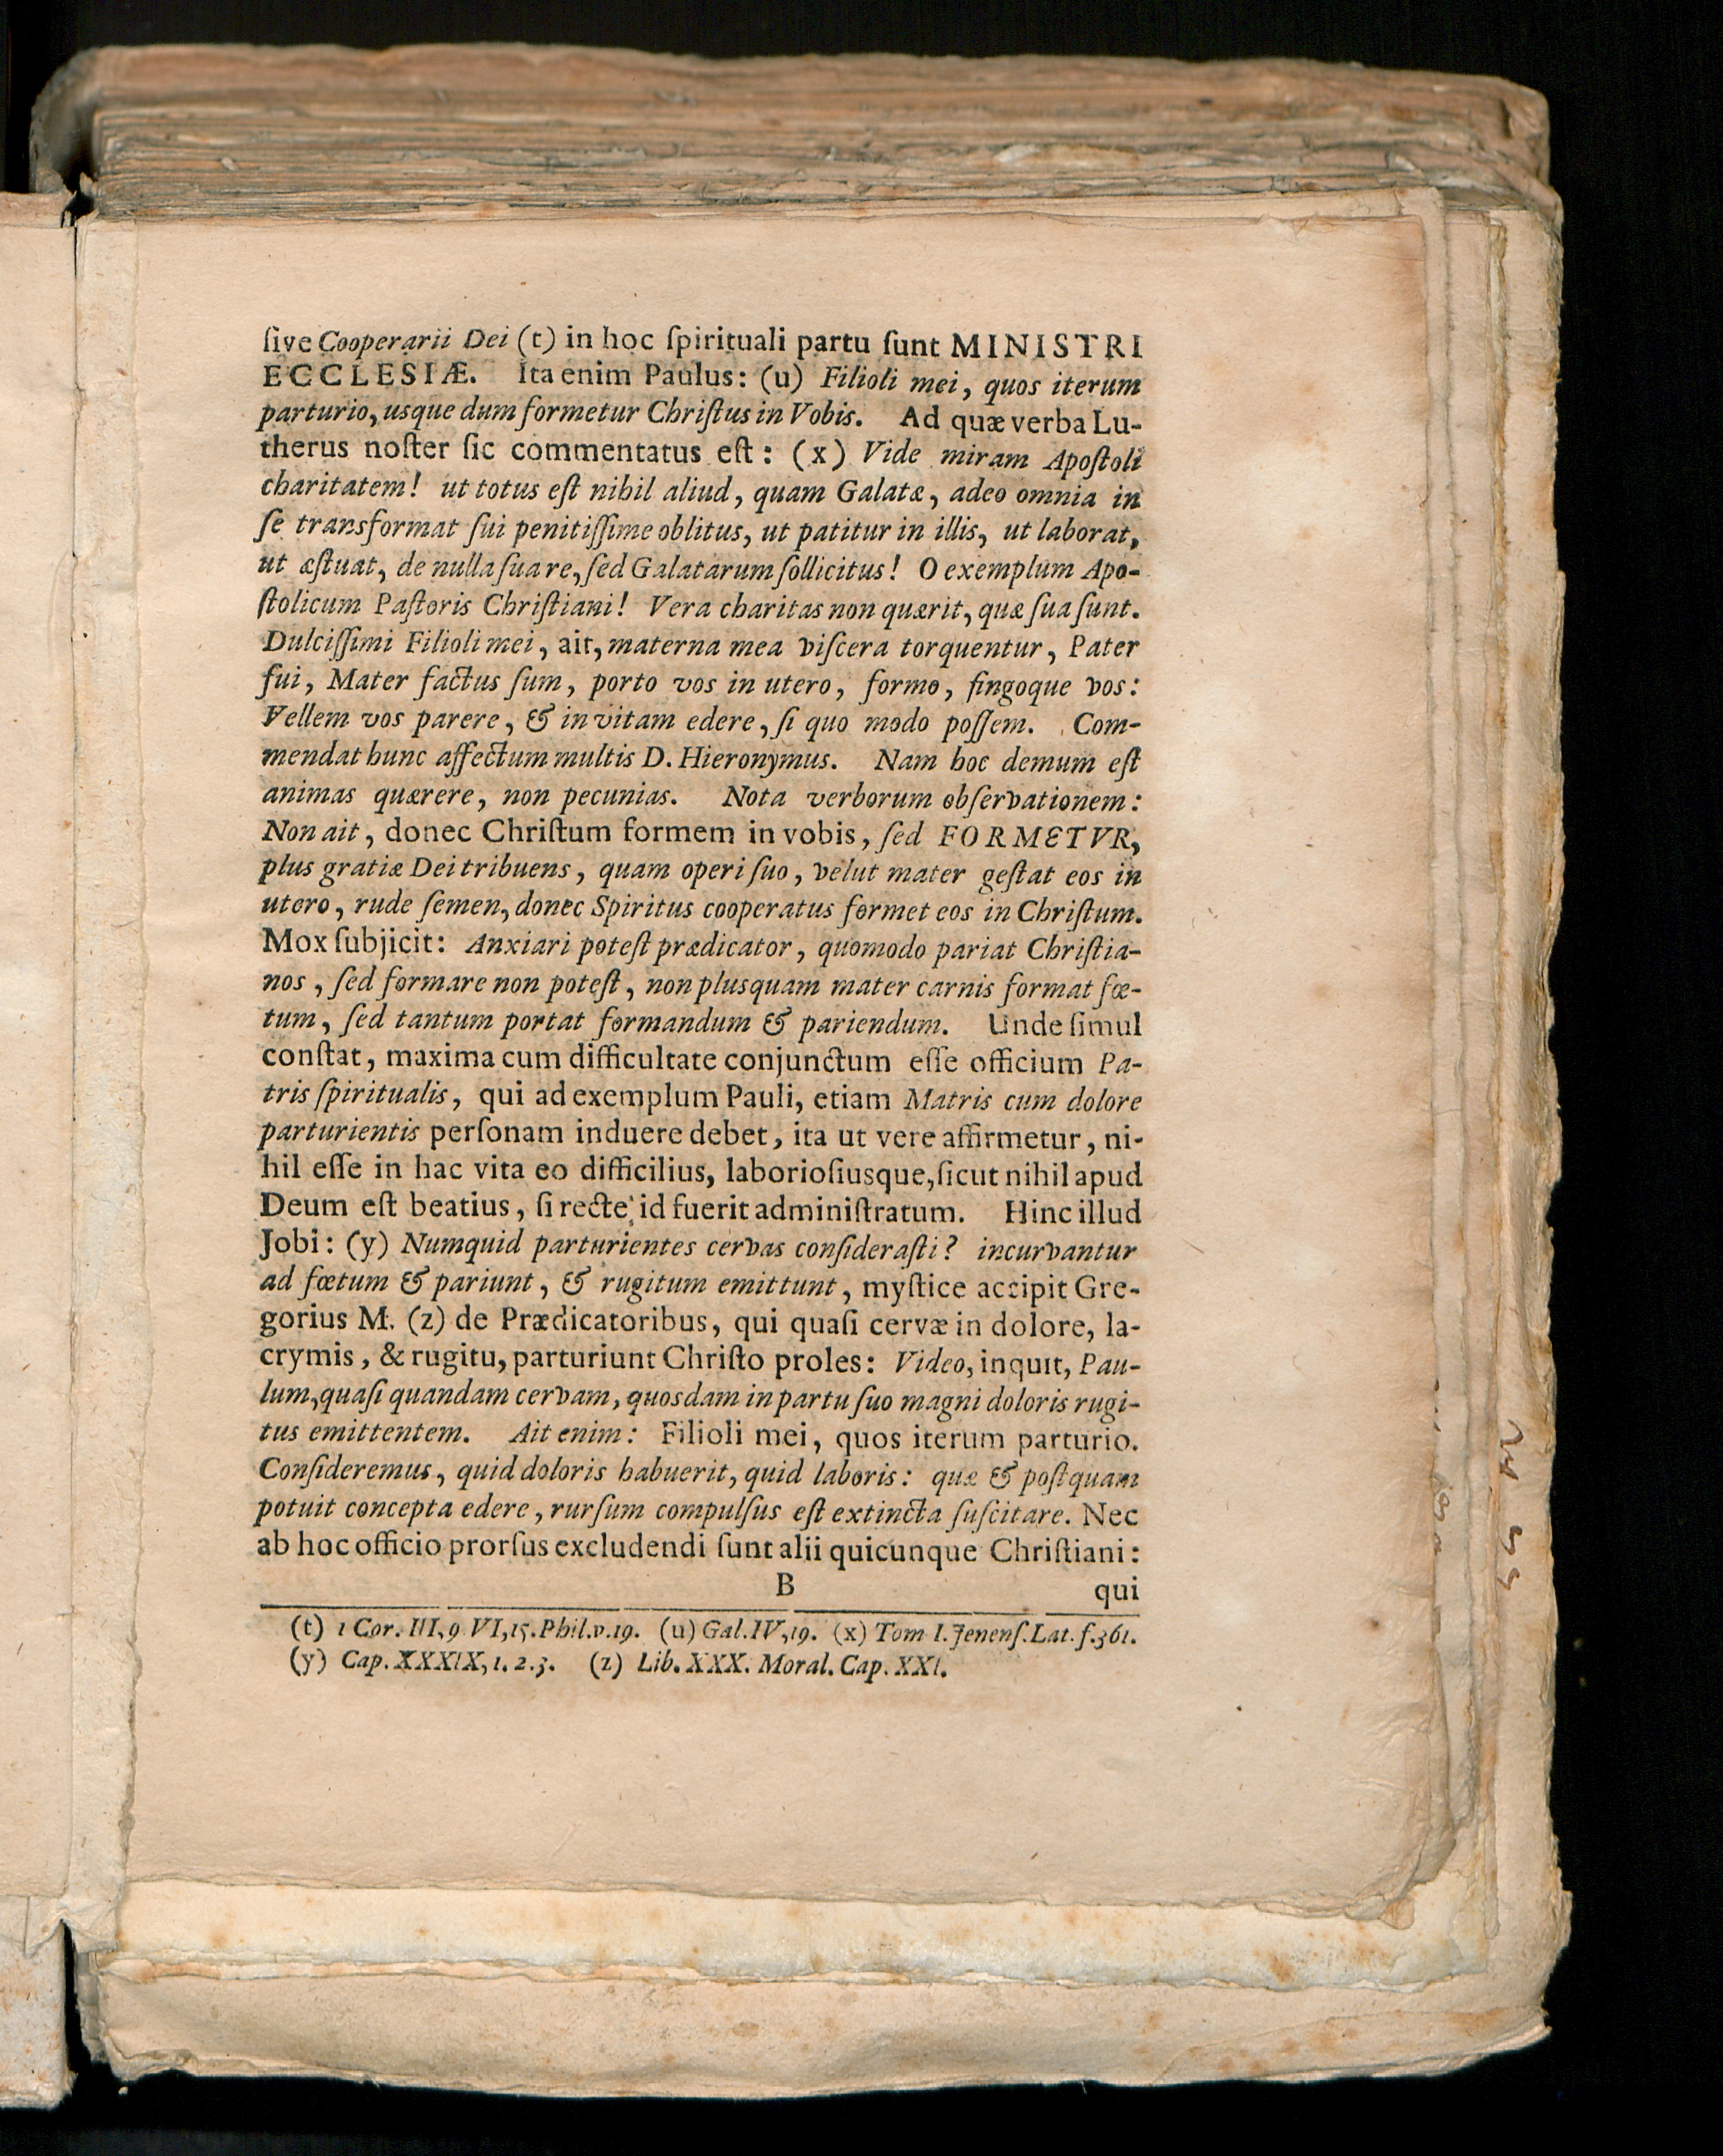 ſive Cooperarii Dei (t) in hoc ſpirituali partu ſunt MINISTRI
ECCLESIÆ. Ita enim Paulus: (u) Filioli mei, quos iterum
parturio, usque dum formetur Chriſtus in Vobis. Ad quæ verba Lu-
therus noſter ſic commentatus eſt: (x) Vide miram Apoſtoli
charitatem! ut totus eſt nihil aliud, quam Galatæ, adeo omnia in
ſe transformat ſui penitiſſime oblitus, ut patitur in illis, ut laborat,
ut æſtuat, de nulla ſua re, ſed Galatarum ſollicitus! O exemplum Apo-
ſtolicum Paſtoris Chriſtiani! Vera charitas non quærit, quæ ſua ſunt.
Dulciſſimi Filioli mei, ait, materna mea viſcera torquentur, Pater
fui, Mater factus ſum, porto vos in utero, formo, fingoque vos:
Vellem vos parere, & in vitam edere, ſi quo modo poſſem. Com-
mendat hunc affectum multis D. Hieronymus. Nam hoc demum eſt
animas quærere, non pecunias. Nota verborum obſervationem:
Non ait, donec Chriſtum formem in vobis, ſed FORMETVR,
plus gratiæ Dei tribuens, quam operi ſuo, velut mater geſtat eos in
utero, rude ſemen, donec Spiritus cooperatus formet eos in Chriſtum.
Mox ſubjicit: Anxiari poteſt prædicator, quomodo pariat Chriſtia-
nos, ſed formare non poteſt, non plusquam mater carnis format fœ-
tum, ſed tantum portat formandum & pariendum. Unde ſimul
conſtat, maxima cum difficultate conjunctum eſſe officium Pa-
tris ſpiritualis, qui ad exemplum Pauli, etiam Matris cum dolore
parturientis perſonam induere debet, ita ut vere affirmetur, ni-
hil eſſe in hac vita eo difficilius, laborioſiusque, ſicut nihil apud
Deum eſt beatius, ſi recte id fuerit adminiſtratum. Hinc illud
Jobi: (y) Numquid parturientes cervas conſideraſti? incurvantur
ad fœtum & pariunt, & rugitum emittunt, myſtice accipit Gre-
gorius M. (z) de Prædicatoribus, qui quaſi cervæ in dolore, la-
crymis, & rugitu, parturiunt Chriſto proles: Video, inquit, Pau-
lum, quaſi quandam cervam, quosdam in partu ſuo magni doloris rugi-
tus emittentem. Ait enim: Filioli mei, quos iterum parturio.
Conſideremus, quid doloris habuerit, quid laboris: quæ & poſtquam
potuit concepta edere, rurſum compulſus eſt extincta ſuſcitare. Nec
ab hoc officio prorſus excludendi ſunt alii quicunque Chriſtiani:
B qui
(t) 1 Cor. III, 9 VI, 15. Phil. v. 19. (u) Gal. IV, 19. (x) Tom I. Jenenſ. Lat. f. 361.
(y) Cap. XXXIX, 1. 2. 3. (z) Lib. XXX. Moral. Cap. XXI.